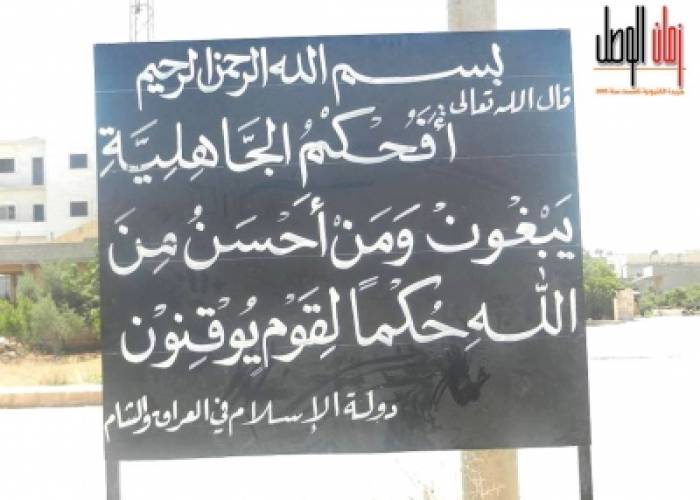 زمان الوصل
بسم الله الرحمن الرحيم
قال الله تعالى:
أَفَحُكْمُ الجَّاهِلِيَّةِ
يَبْغُونْ وَمَنْ أَحْسَنُ مِنَ
اللهِ حُكْمًا لِقَوْمٍ يُوْقِنُوْن
دولة الإسلام في العراق والشام